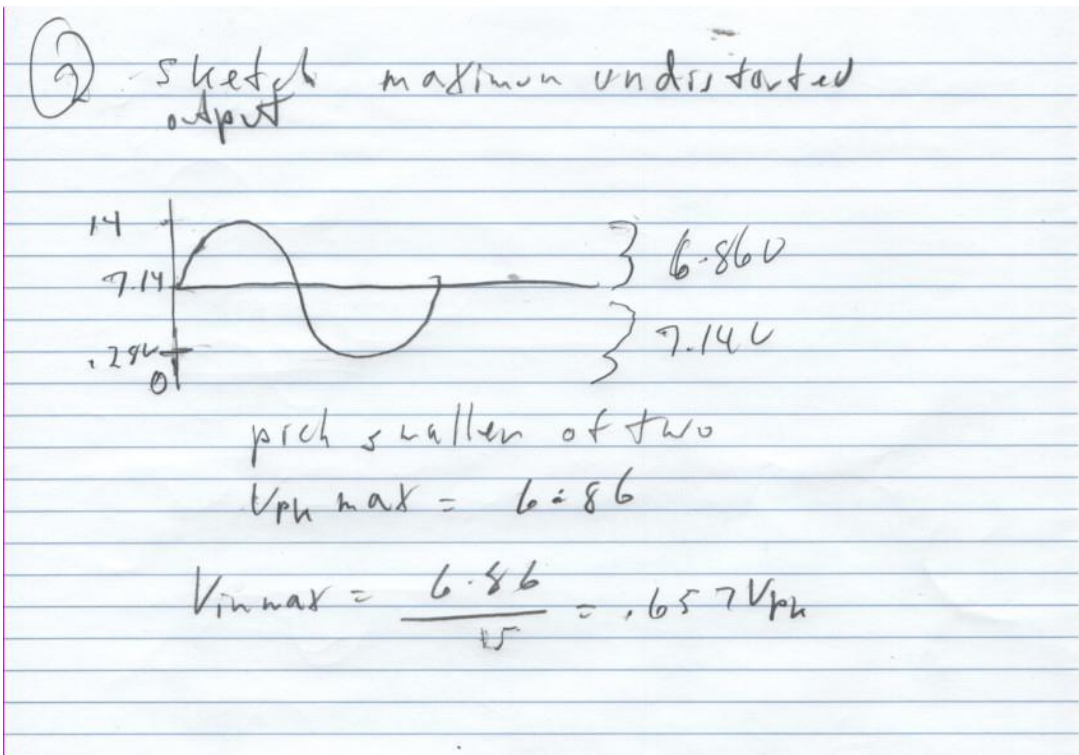 2 sketch maximum undistorted
output
14
6.86V
7.14
7.14V
.28V
0
pick smaller of two
Vpk max = 6.86
Vin max = 6.86 / 15 = .657 Vpk